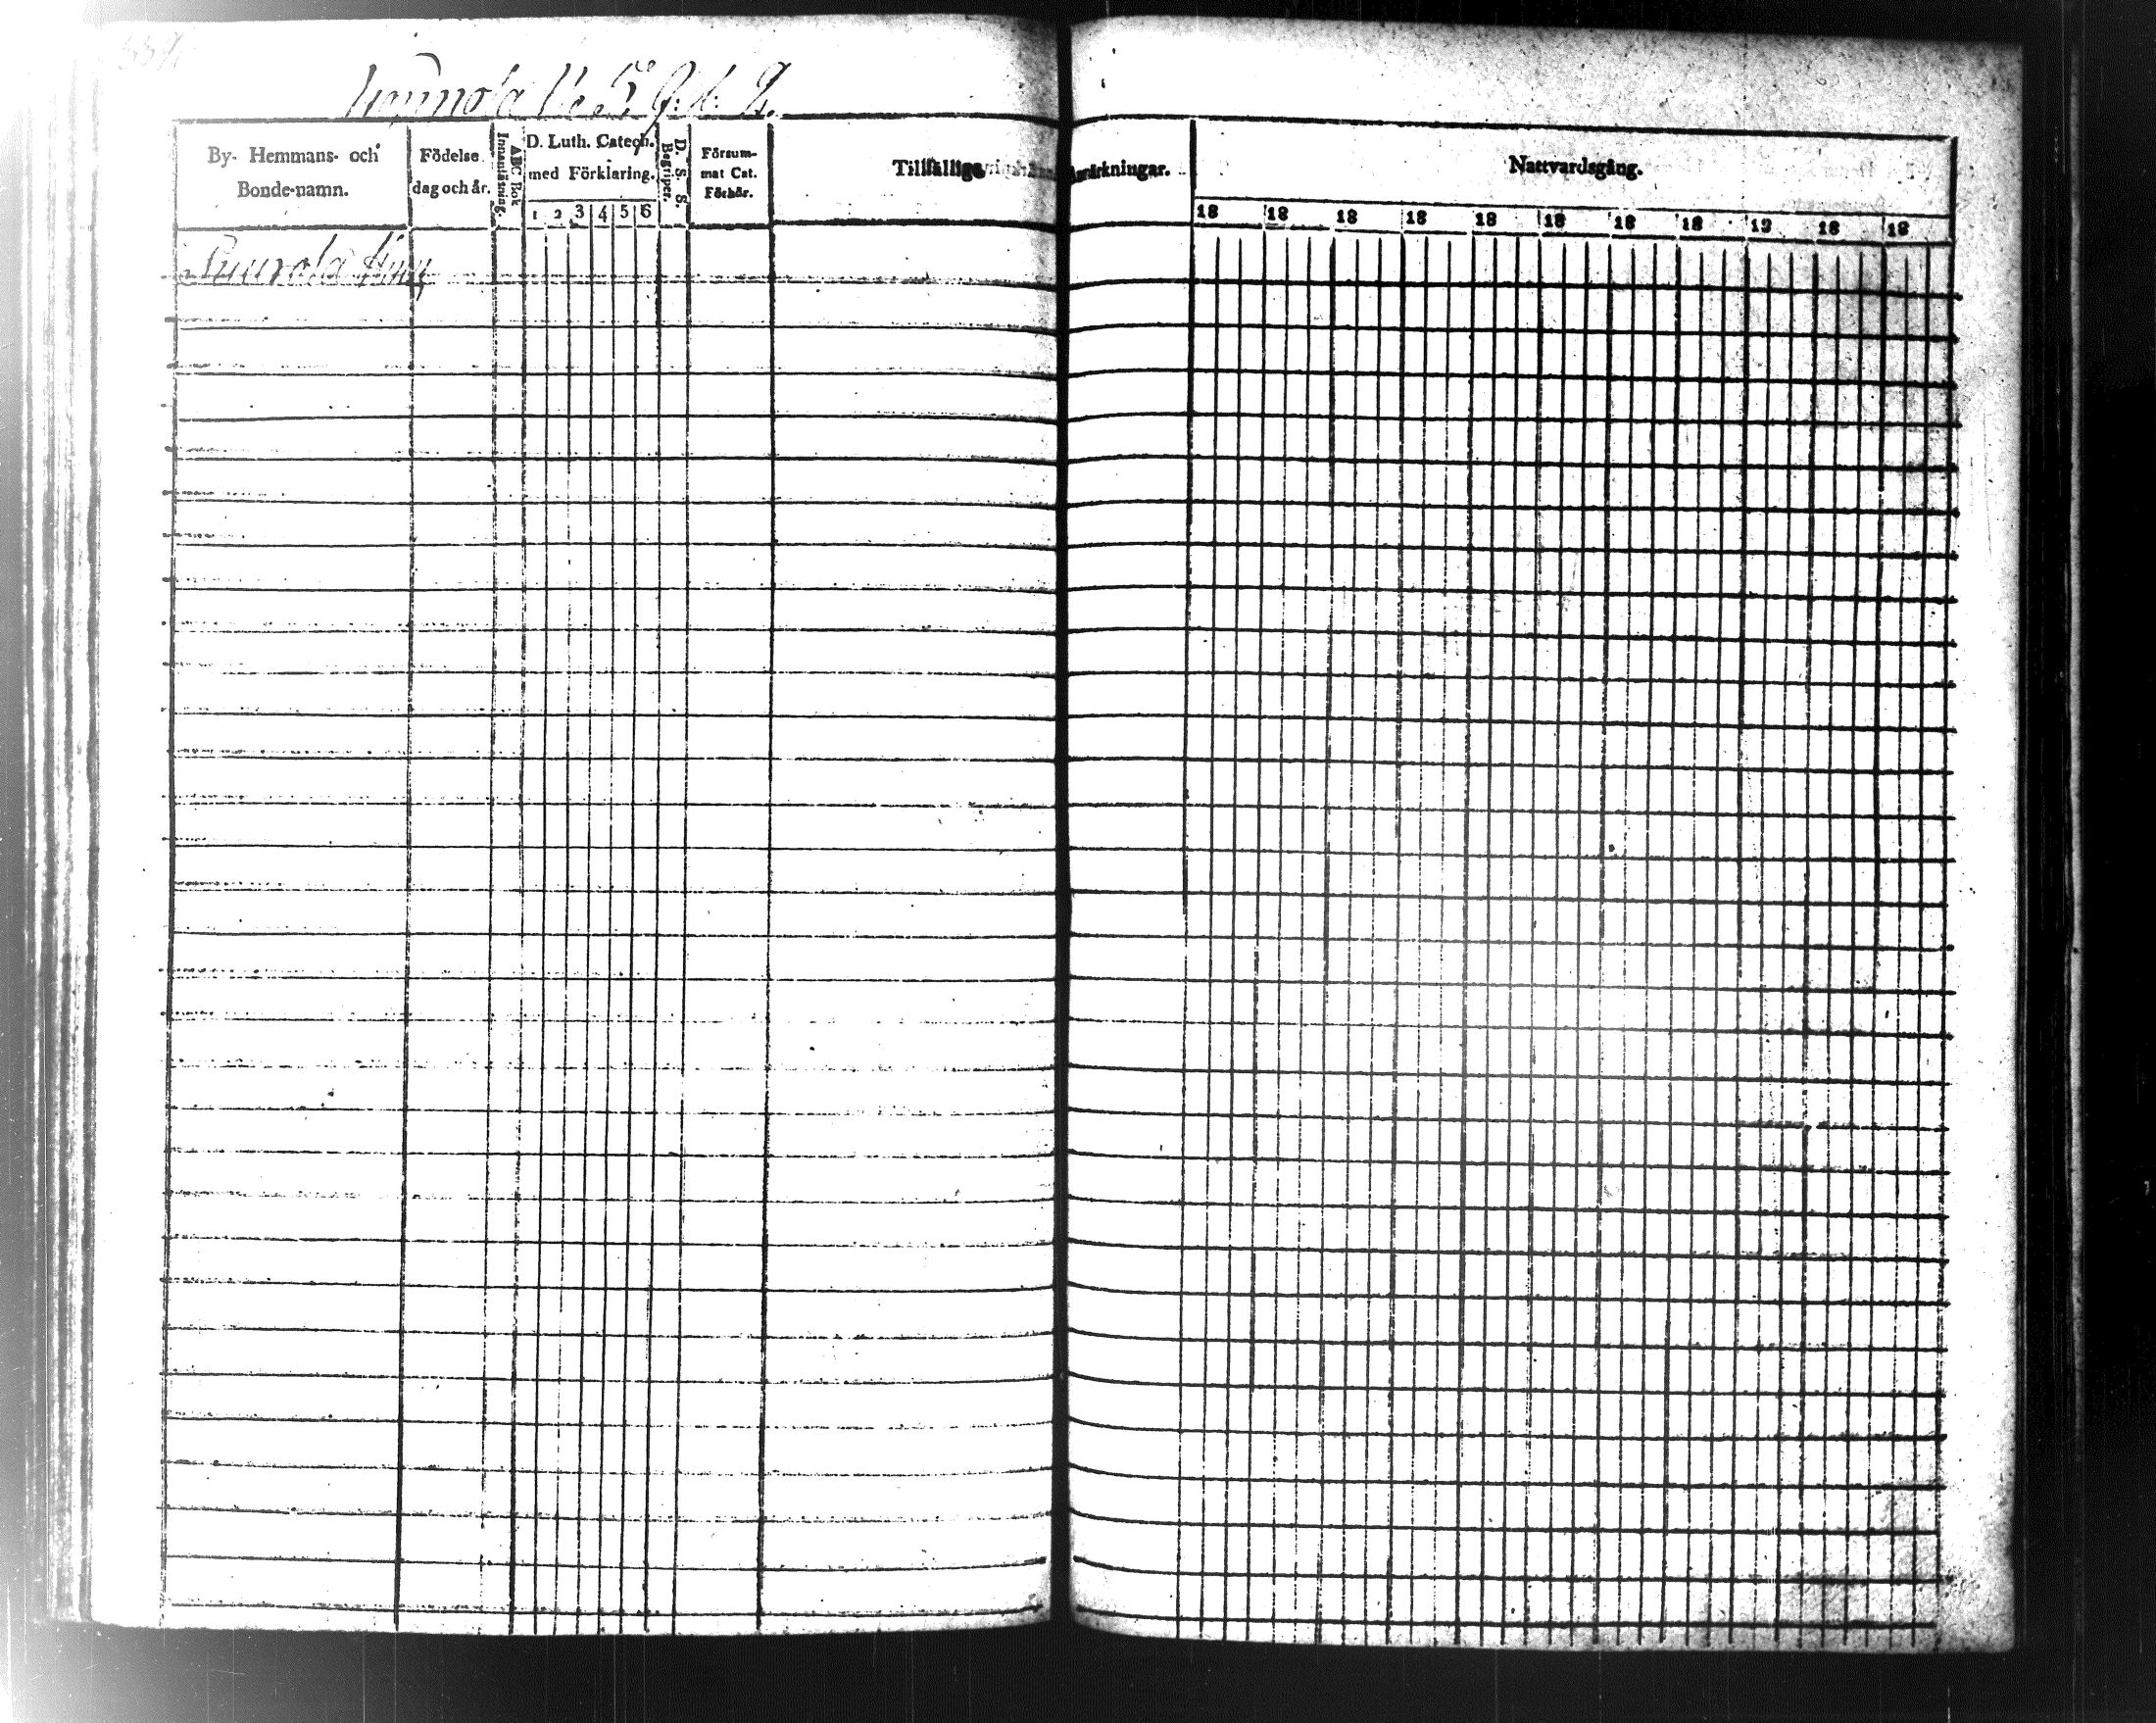 By- Hemmans- och
Bonde-namn.
Födelse
dag och år.
Innanläsning.
ABC Bok
D. Luth. Catech.
med Förklaring.
1 2 3 4 5 6
D. S. S.
Begriper.
Försum-
mat Cat.
Förhör.
Tillfällige
Anmärkningar.
Nattvardsgång.
18 18 18 18 18 18 18 18 18 18 18